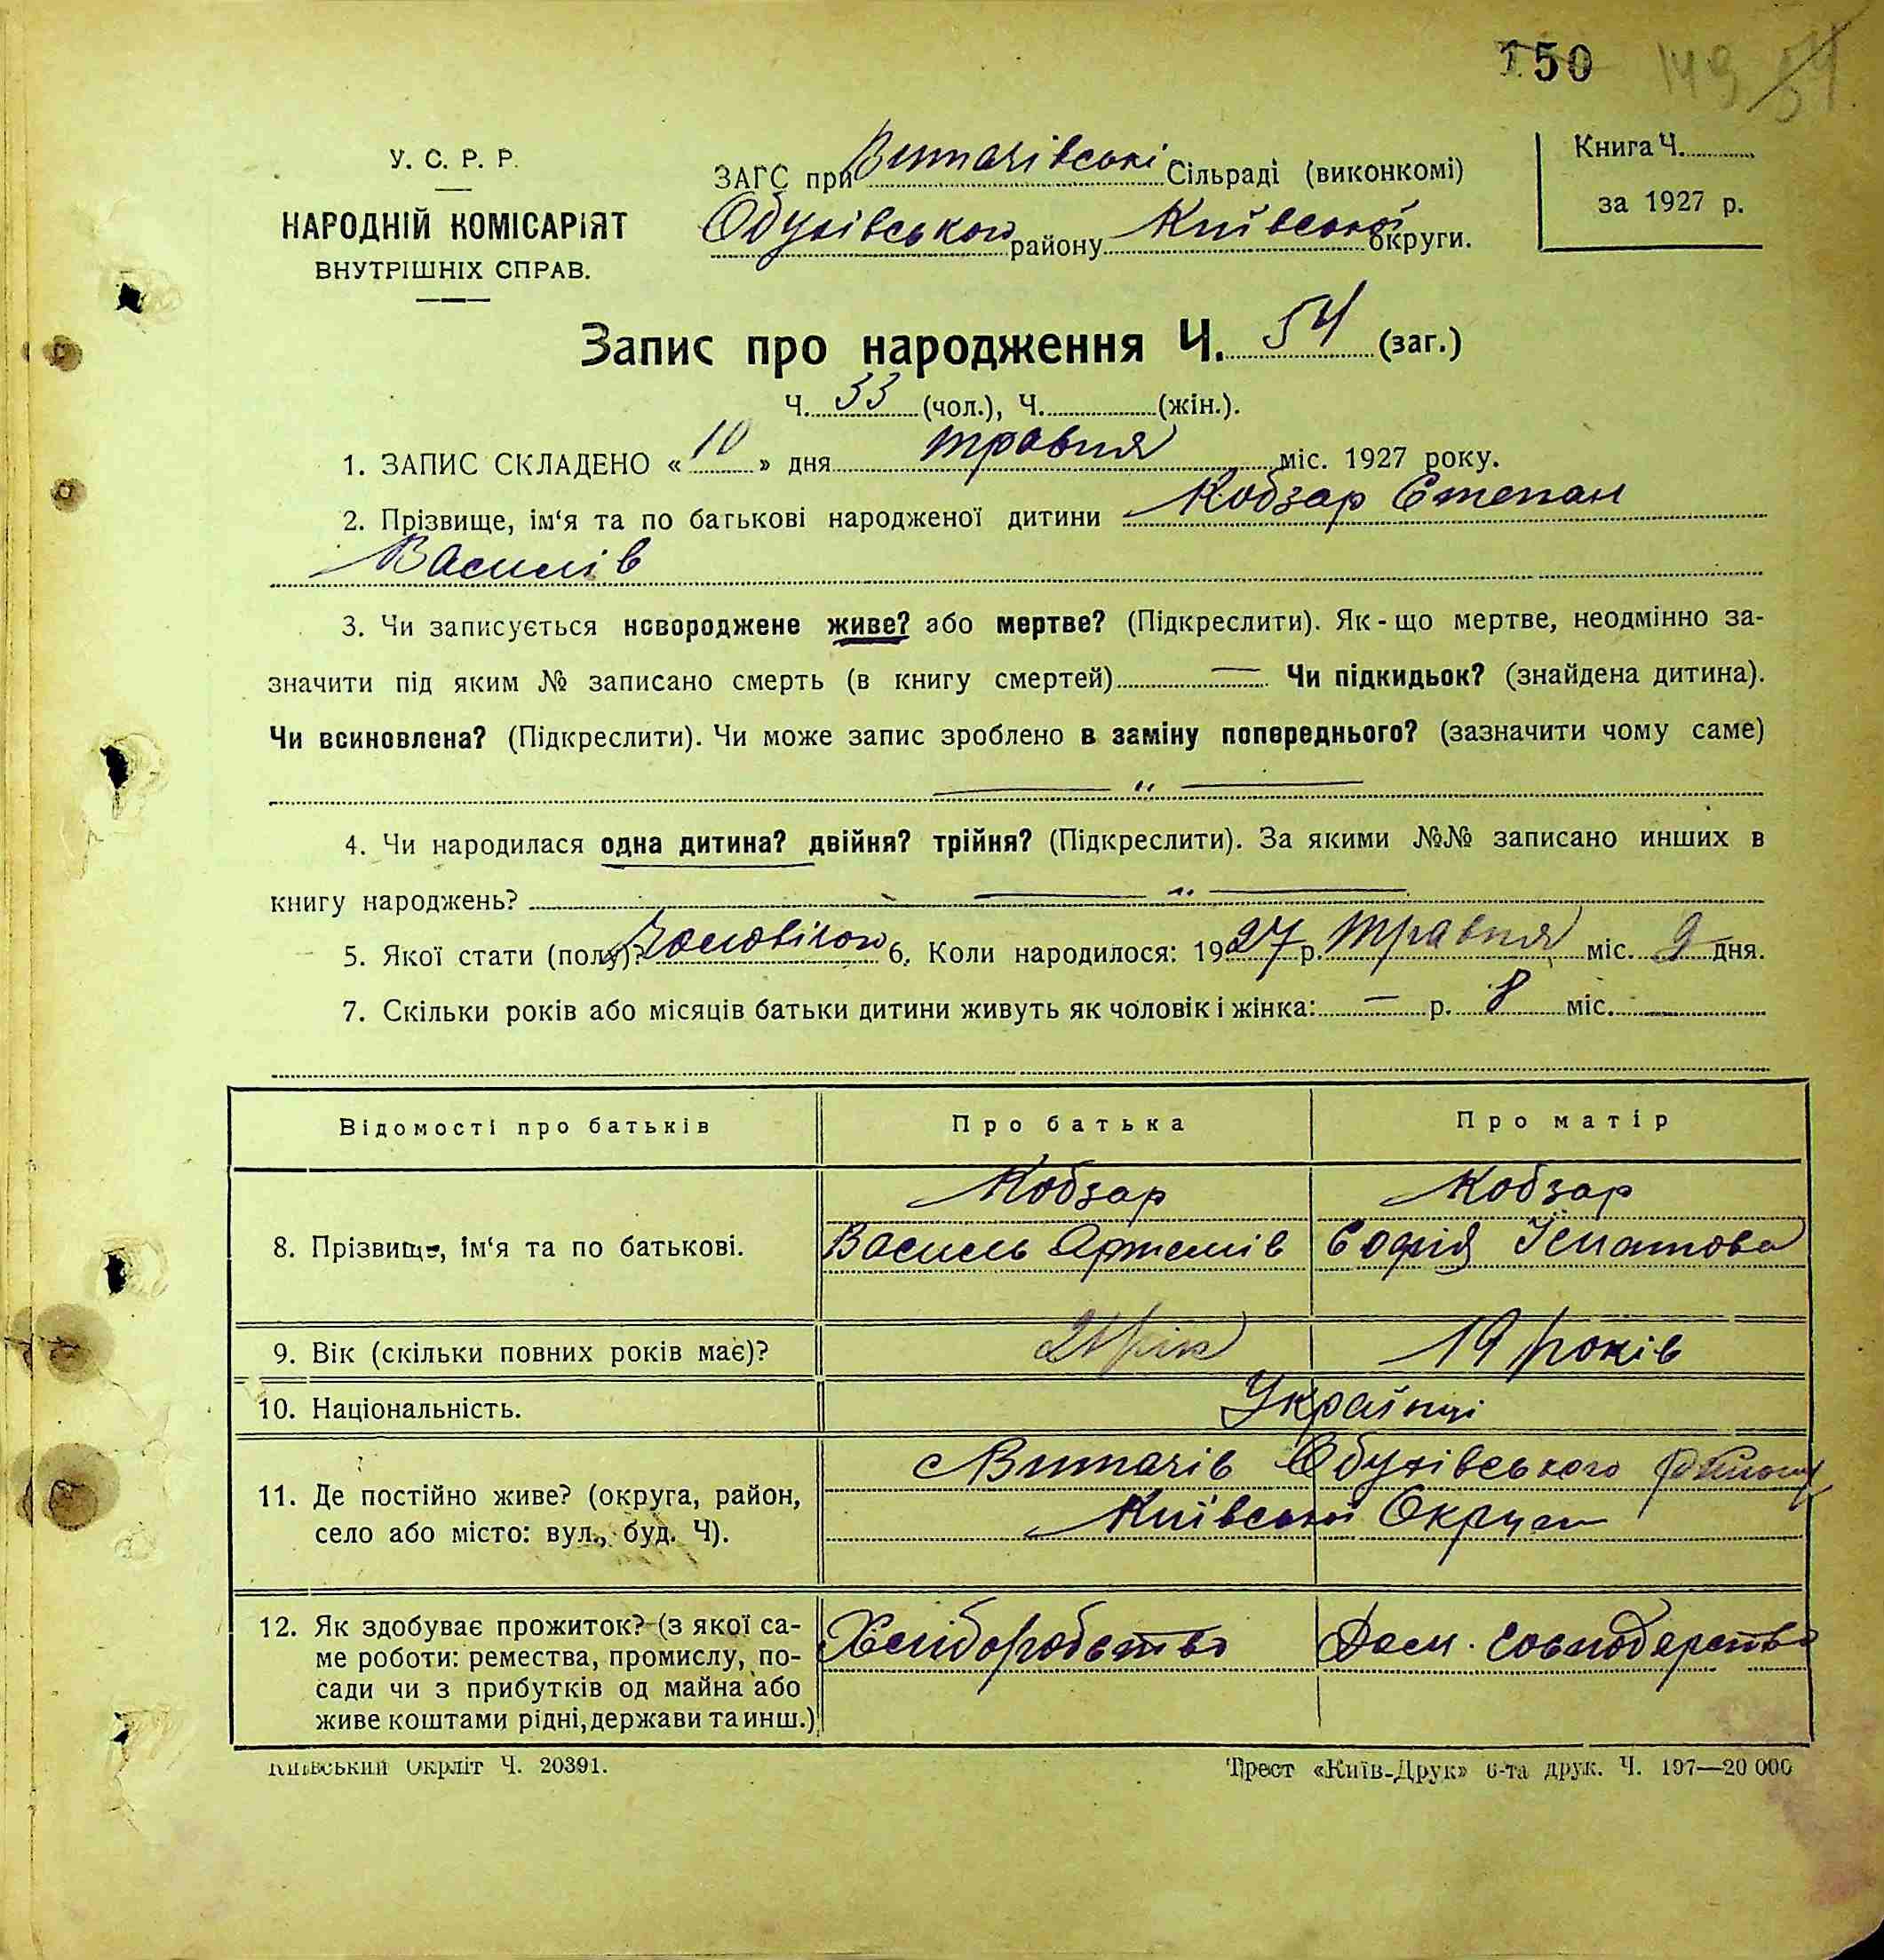 150 149 54
У. С. Р. Р.
НАРОДНІЙ КОМІСАРІЯТ
ВНУТРІШНІХ СПРАВ.
ЗАГС при Витачівські Сільраді (виконкомі)
Обухівського району Київської округи.
Книга Ч.
за 1927 р.
Запис про народження Ч. 54 (заг.)
Ч. 33 (чол.), Ч. (жін.).
1. ЗАПИС СКЛАДЕНО « 10 » дня травня міс. 1927 року.
2. Прізвище, ім‘я та по батькові народженої дитини Кобзар Степан
Василів
3. Чи записується новороджене живе? або мертве? (Підкреслити). Як-що мертве, неодмінно за-
значити під яким № записано смерть (в книгу смертей) — Чи підкидьок? (знайдена дитина).
Чи всиновлена? (Підкреслити). Чи може запис зроблено в заміну попереднього? (зазначити чому саме)
— „ —
4. Чи народилася одна дитина? двійня? трійня? (Підкреслити). За якими №№ записано инших в
книгу народжень? — „ —
5. Якої стати (полу)? Чоловічої 6. Коли народилося: 1927 р. травня міс. 9 дня.
7. Скільки років або місяців батьки дитини живуть як чоловік і жінка: — р. 8 міс.
Відомості про батьків Про батька Про матір
8. Прізвище, ім‘я та по батькові.
Кобзар Кобзар
Василь Артемів Софія Ігнатова
9. Вік (скільки повних років має)? 21 рік 19 років
10. Національність. Українці
11. Де постійно живе? (округа, район,
село або місто: вул., буд. Ч).
с Витачів Обухівського району
Київської Округи
12. Як здобуває прожиток? (з якої са-
ме роботи: ремества, промислу, по-
сади чи з прибутків од майна або
живе коштами рідні, держави та инш.)
Хліборобство Дом. господарство
Київський Окрліт Ч. 20391.
Трест «Київ-Друк» 6-та друк. Ч. 197—20 000